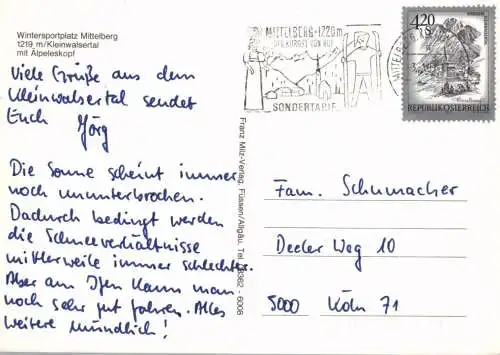 Wintersportplatz Mittelberg
1219 m/Kleinwalsertal
mit Älpeleskopf
Viele Grüße aus dem
Kleinwalsertal sendet
Euch Jörg
Die Sonne scheint immer
noch ununterbrochen.
Dadurch bedingt werden
die Schneeverhältnisse
mittlerweile immer schlechter.
Aber am Ifen kann man
noch sehr gut fahren. Alles
weitere mündlich!
Franz Milz-Verlag, Füssen/Allgäu, Tel. 08362 - 6008
MITTELBERG·1220m
DER KURORT VON RUF
SONDERTARIF
MITTELBERG
4.20
REPUBLIK ÖSTERREICH
Fam. Schumacher
Decker Weg 10
5000 Köln 71